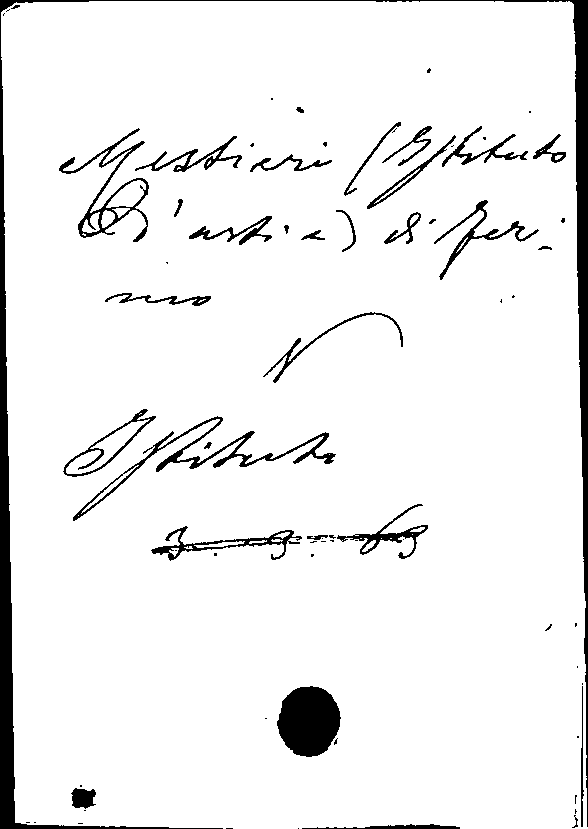 Mestieri (Istituto
d'arti e) di Fer-
mo
V
Istituto
3. 9. 63